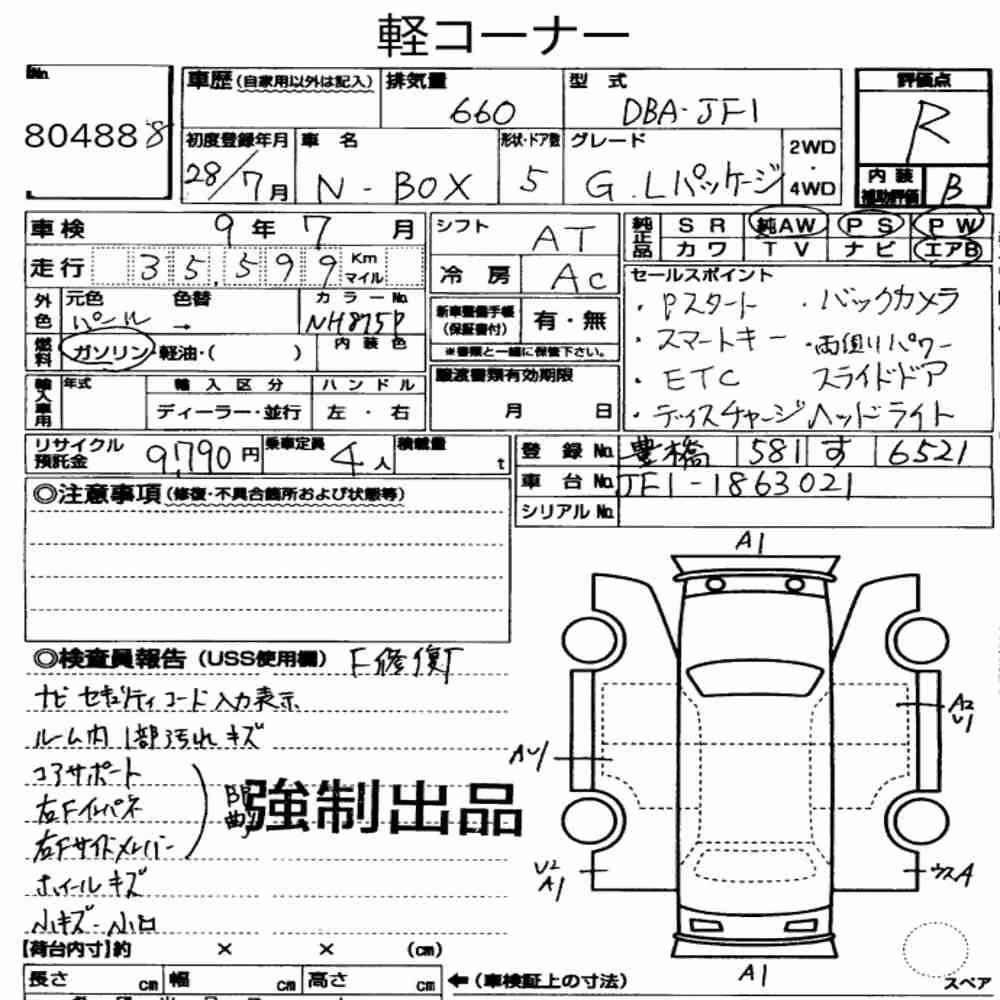 軽コーナー
No.
80488 8
車歴 (自家用以外は記入) 排気量 660 型式 DBA-JF1 評価点 R
初度登録年月 28/7月 車名 N-BOX 形状・ドア数 5 グレード G.Lパッケージ 2WD・4WD 内装補助評価 B
車検 9年7月 シフト AT 純正品 SR 純AW PS PW
走行 35,599 Km マイル 冷房 AC カワ TV ナビ エアB
外色 元色 パール 色替 → カラーNo. NH875P
新車整備手帳(保証書付) 有・無
※書類と一緒に保管下さい。
燃料 ガソリン・軽油・( ) 内装色
セールスポイント
・Pスタート ・バックカメラ
・スマートキー ・両側リパワー
・ETC スライドドア
・ディスチャージヘッドライト
譲渡書類有効期限
月 日
輸入車用 年式 輸入区分 ハンドル
ディーラー・並行 左・右
リサイクル預託金 9,790円 乗車定員 4人 積載量 t
登録No. 豊橋 581 す 6521
車台No. JF1-1863021
シリアルNo.
◎注意事項(修復・不具合箇所および状態等)
◎検査員報告(USS使用欄) F修復
ナビ セキュリティコード入力表示
ルーム内1部汚れキズ
コアサポート
右Fインパネ
右Fサイドメンバー
曲
強制出品
ホイールキズ
小キズ・小凹
A1
A2
U1
AU1
U2
A1
ウスA
A1
スペア
【荷台内寸】約 × × (cm)
長さ cm 幅 cm 高さ cm ←(車検証上の寸法)